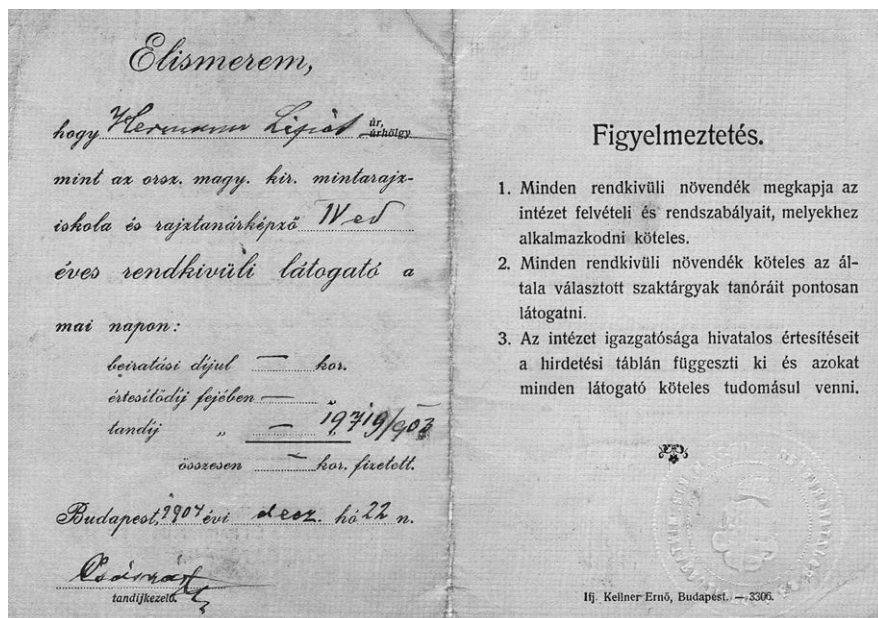 Elismerem,
hogy Hermann Lipót úr, úrhölgy
mint az orsz. magy. kir. mintarajz-
iskola és rajztanárképző IV ed
éves rendkivüli látogató a
mai napon:
beiratási díjul — kor.
értesítődíj fejében — „
tandíj „ — „
össezesen — kor. fizetett.
Budapest, 1904 évi decz. hó 22 n.
tandíjkezelő.
Figyelmeztetés.
1. Minden rendkivüli növendék megkapja az
intézet felvételi és rendszabályait, melyekhez
alkalmazkodni köteles.
2. Minden rendkivüli növendék köteles az ál-
tala választott szaktárgyak tanóráit pontosan
látogatni.
3. Az intézet igazgatósága hivatalos értesítéseit
a hirdetési táblán függeszti ki és azokat
minden látogató köteles tudomásul venni.
Ifj. Kellner Ernő, Budapest. — 3306.